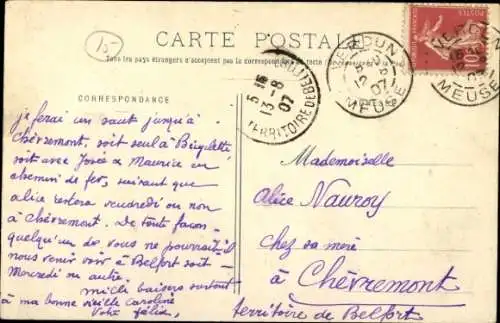 15
CARTE POSTALE
Tous les pays étrangers n'acceptent pas la correspondance
CORRESPONDANCE
POSTES
10
VERDUN
MEUSE
07
VERDUN
MEUSE
BELFORT
5 15
13 - 8
07
TERRITOIRE DE
je ferai un saut jusqu'à
Chèvremont, soit seul à Bicyclette
soit avec Josée & Maurice en
chemin de fer, suivant que
alice restera vendredi ou non
à Chèvremont. De toute façon
quelqu'un de vous ne pourrait-il
nous venir voir à Belfort soit
Mercredi ou autre
mille baisers surtout
à ma bonne vieille Caroline
Votre félix,
Mademoiselle
Alice Nauroy
chez sa mère
à Chèvremont
territoire de Belfort